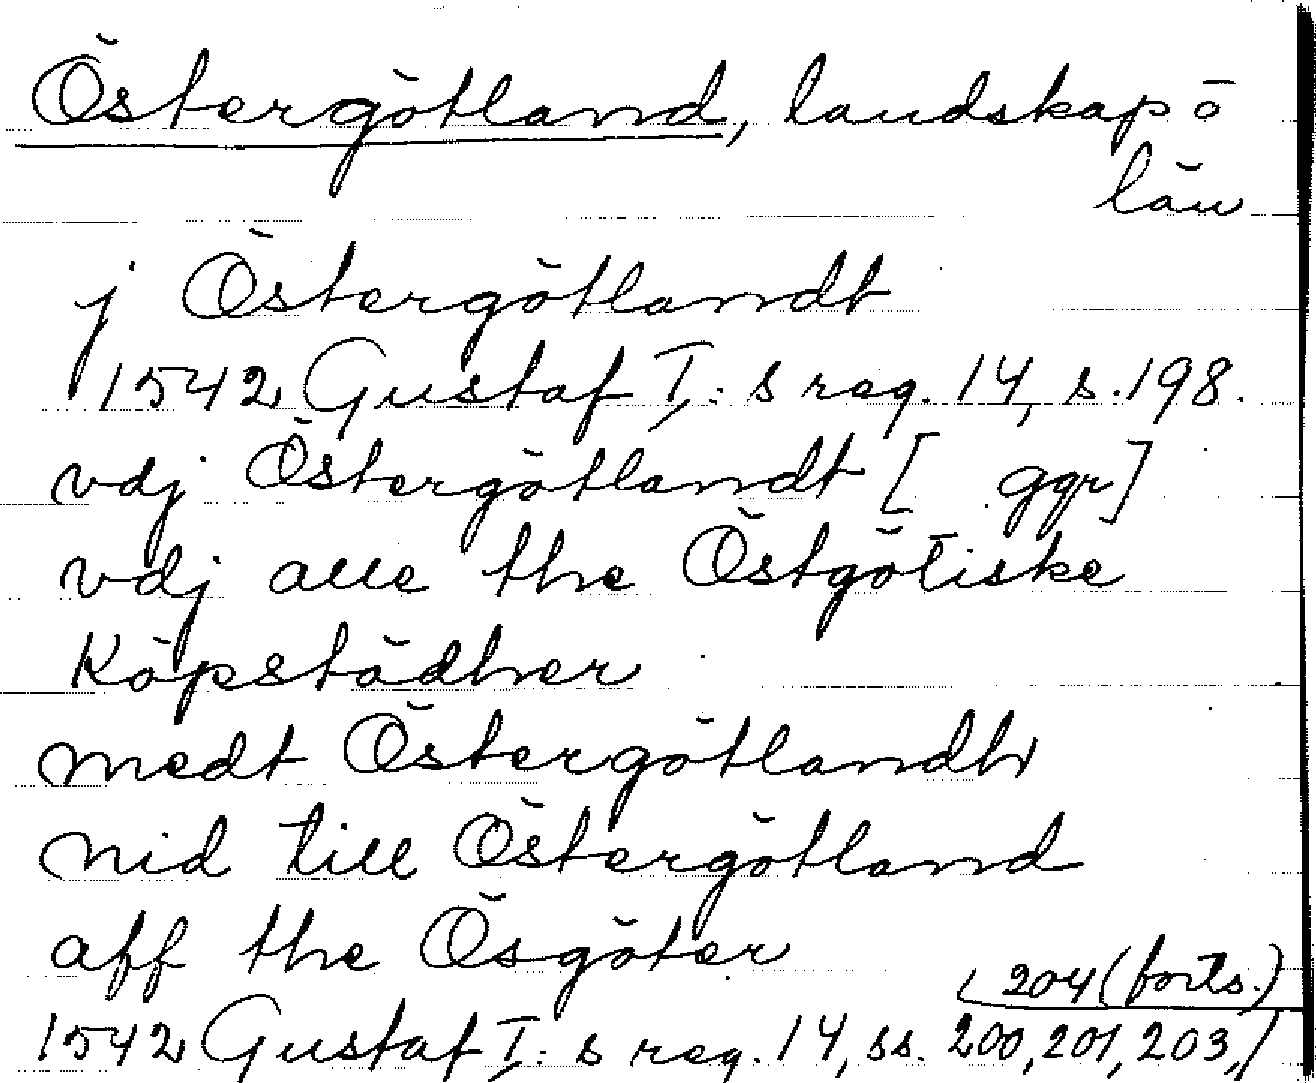 Östergötland, landskap o
län
j Östergötlandt
1542 Gustaf I:s reg. 14, s. 198.
vdj Östergötlandt [ ggr]
vdj alle the Östgötiske
Köpstädher
medt Östergötlandh
nid till Östergötland
aff the Ösgöter
204 (forts.)
1542 Gustaf I:s reg. 14, ss. 200, 201, 203,